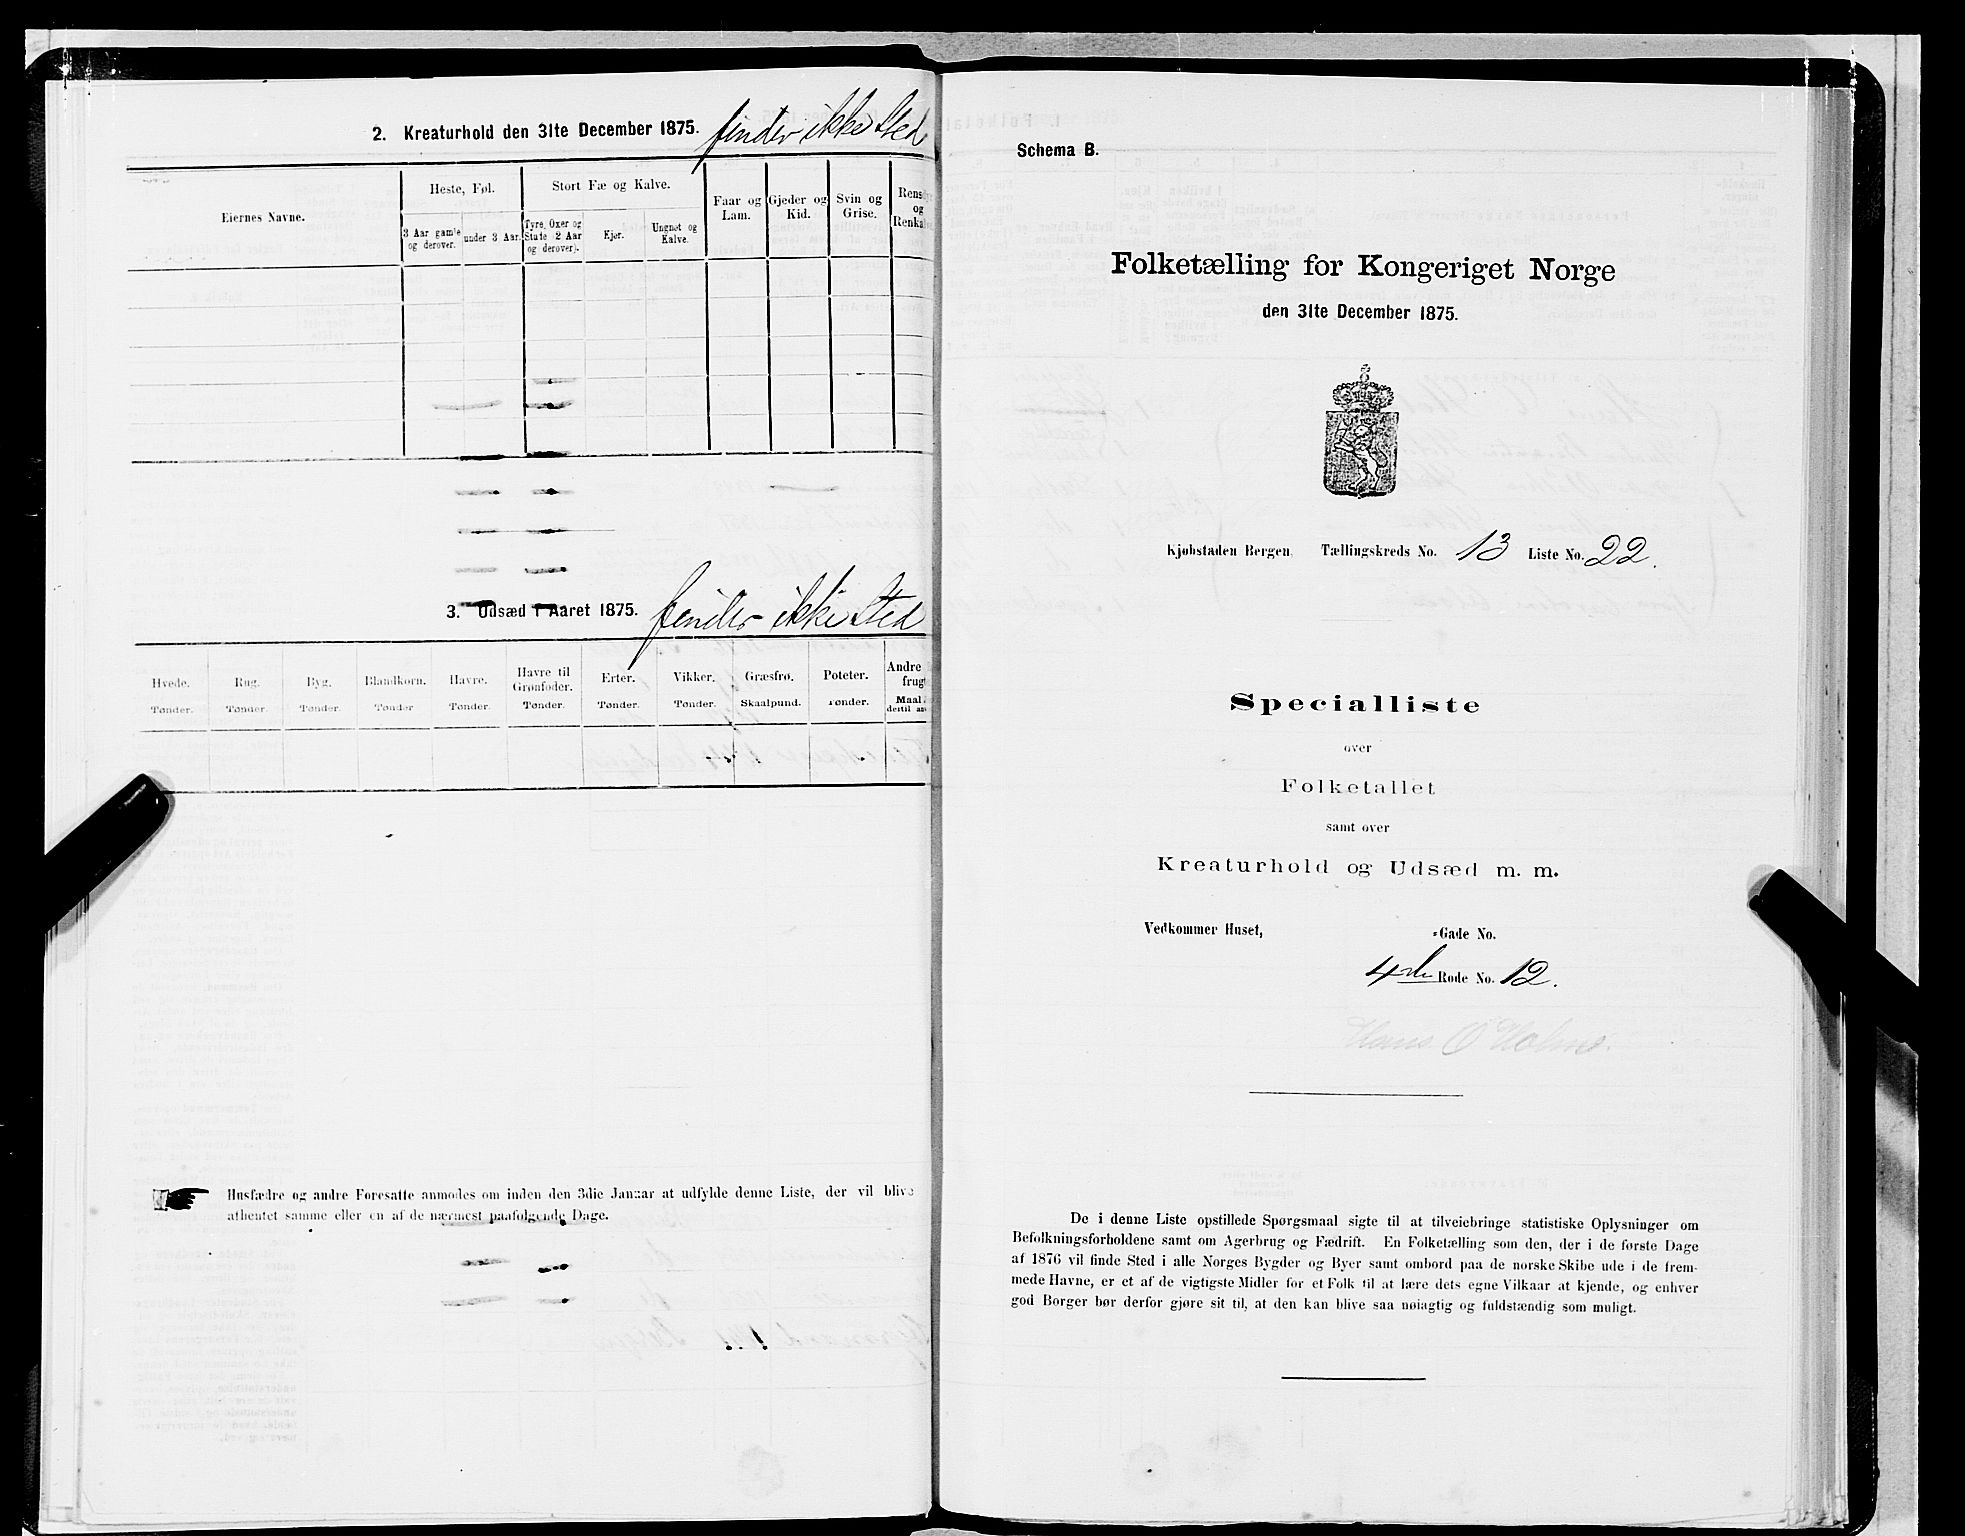 2. Kreaturhold den 31te December 1875. finder ikke Sted
Eiernes Navne.
Heste, Føl.
Stort Fæ og Kalve.
Faar og Lam.
Gjeder og Kid.
Svin og Grise.
Rensdyr og Renkalve
3 Aar gamle og derover.
under 3 Aar.
Tyre, Oxer og Stude (2 Aar og derover).
Kjør.
Ungnøt og Kalve.
3. Udsæd i Aaret 1875. finder ikke Sted
Hvede. Rug. Byg. Blandkorn. Havre. Havre til Grønfoder. Erter. Vikker. Græsfrø. Poteter. Andre
frugt
Tønder. Tønder. Tønder. Tønder Tønder. Tønder. Tønder. Tønder. Skaalpund. Tønder. Maal
destil
Husfædre og andre Foresatte anmodes om inden den 3die Januar at udfylde denne Liste, der vil blive
afhentet samme eller en af de nærmest paafølgende Dage.
Schema B.
Folketælling for Kongeriget Norge
den 31te December 1875.
Kjøbstaden Bergen. Tællingskreds No. 13 Liste No. 22.
Specialliste
over
Folketallet
samt over
Kreaturhold og Udsæd m. m.
Vedkommer Huset, -Gade No.
4de Rode No. 12.
Hans O Holme.
De i denne Liste opstillede Spørgsmaal sigte til at tilveiebringe statistiske Oplysninger om
Befolkningsforholdene samt om Agerbrug og Fædrift. En Folketælling som den, der i de første Dage
af 1876 vil finde Sted i alle Norges Bygder og Byer samt ombord paa de norske Skibe ude i de frem-
mede Havne, er et af de vigtigste Midler for et Folk til at lære dets egne Vilkaar at kjende, og enhver
god Borger bør derfor gjøre sit til, at den kan blive saa nøiagtig og fuldstændig som muligt.